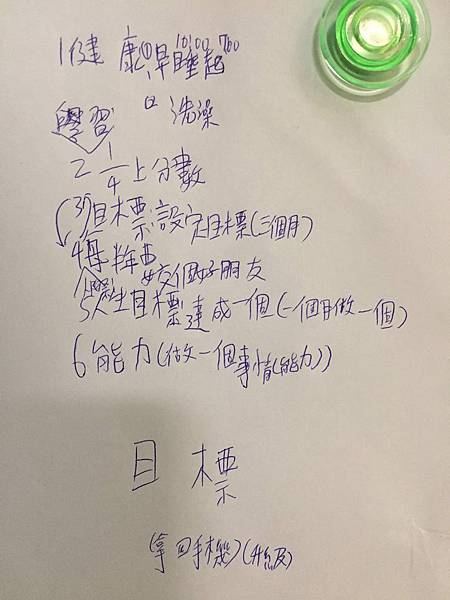 1健康①早睡起 10:00 7:00
②洗澡
學習
2 1/4上分數
3目標 設定目標(三個月)
4每半年要交個好朋友
5人生目標達成一個(一個月做一個)
6能力(做一個事情(能力))
目標
(拿回手機)(升級)